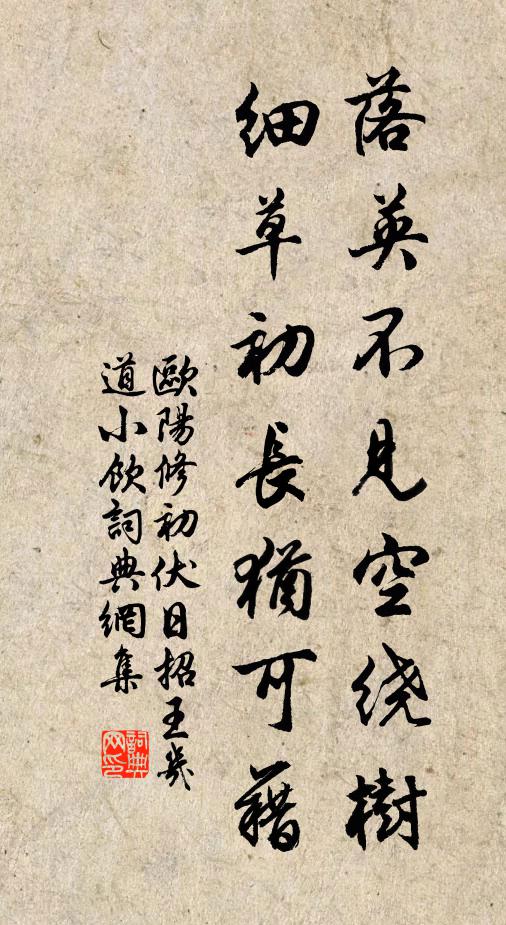 落英不見空绕樹
細草初長猶可藉
歐陽修初伏日招王幾
道小飲詞典網集
詞典
网印